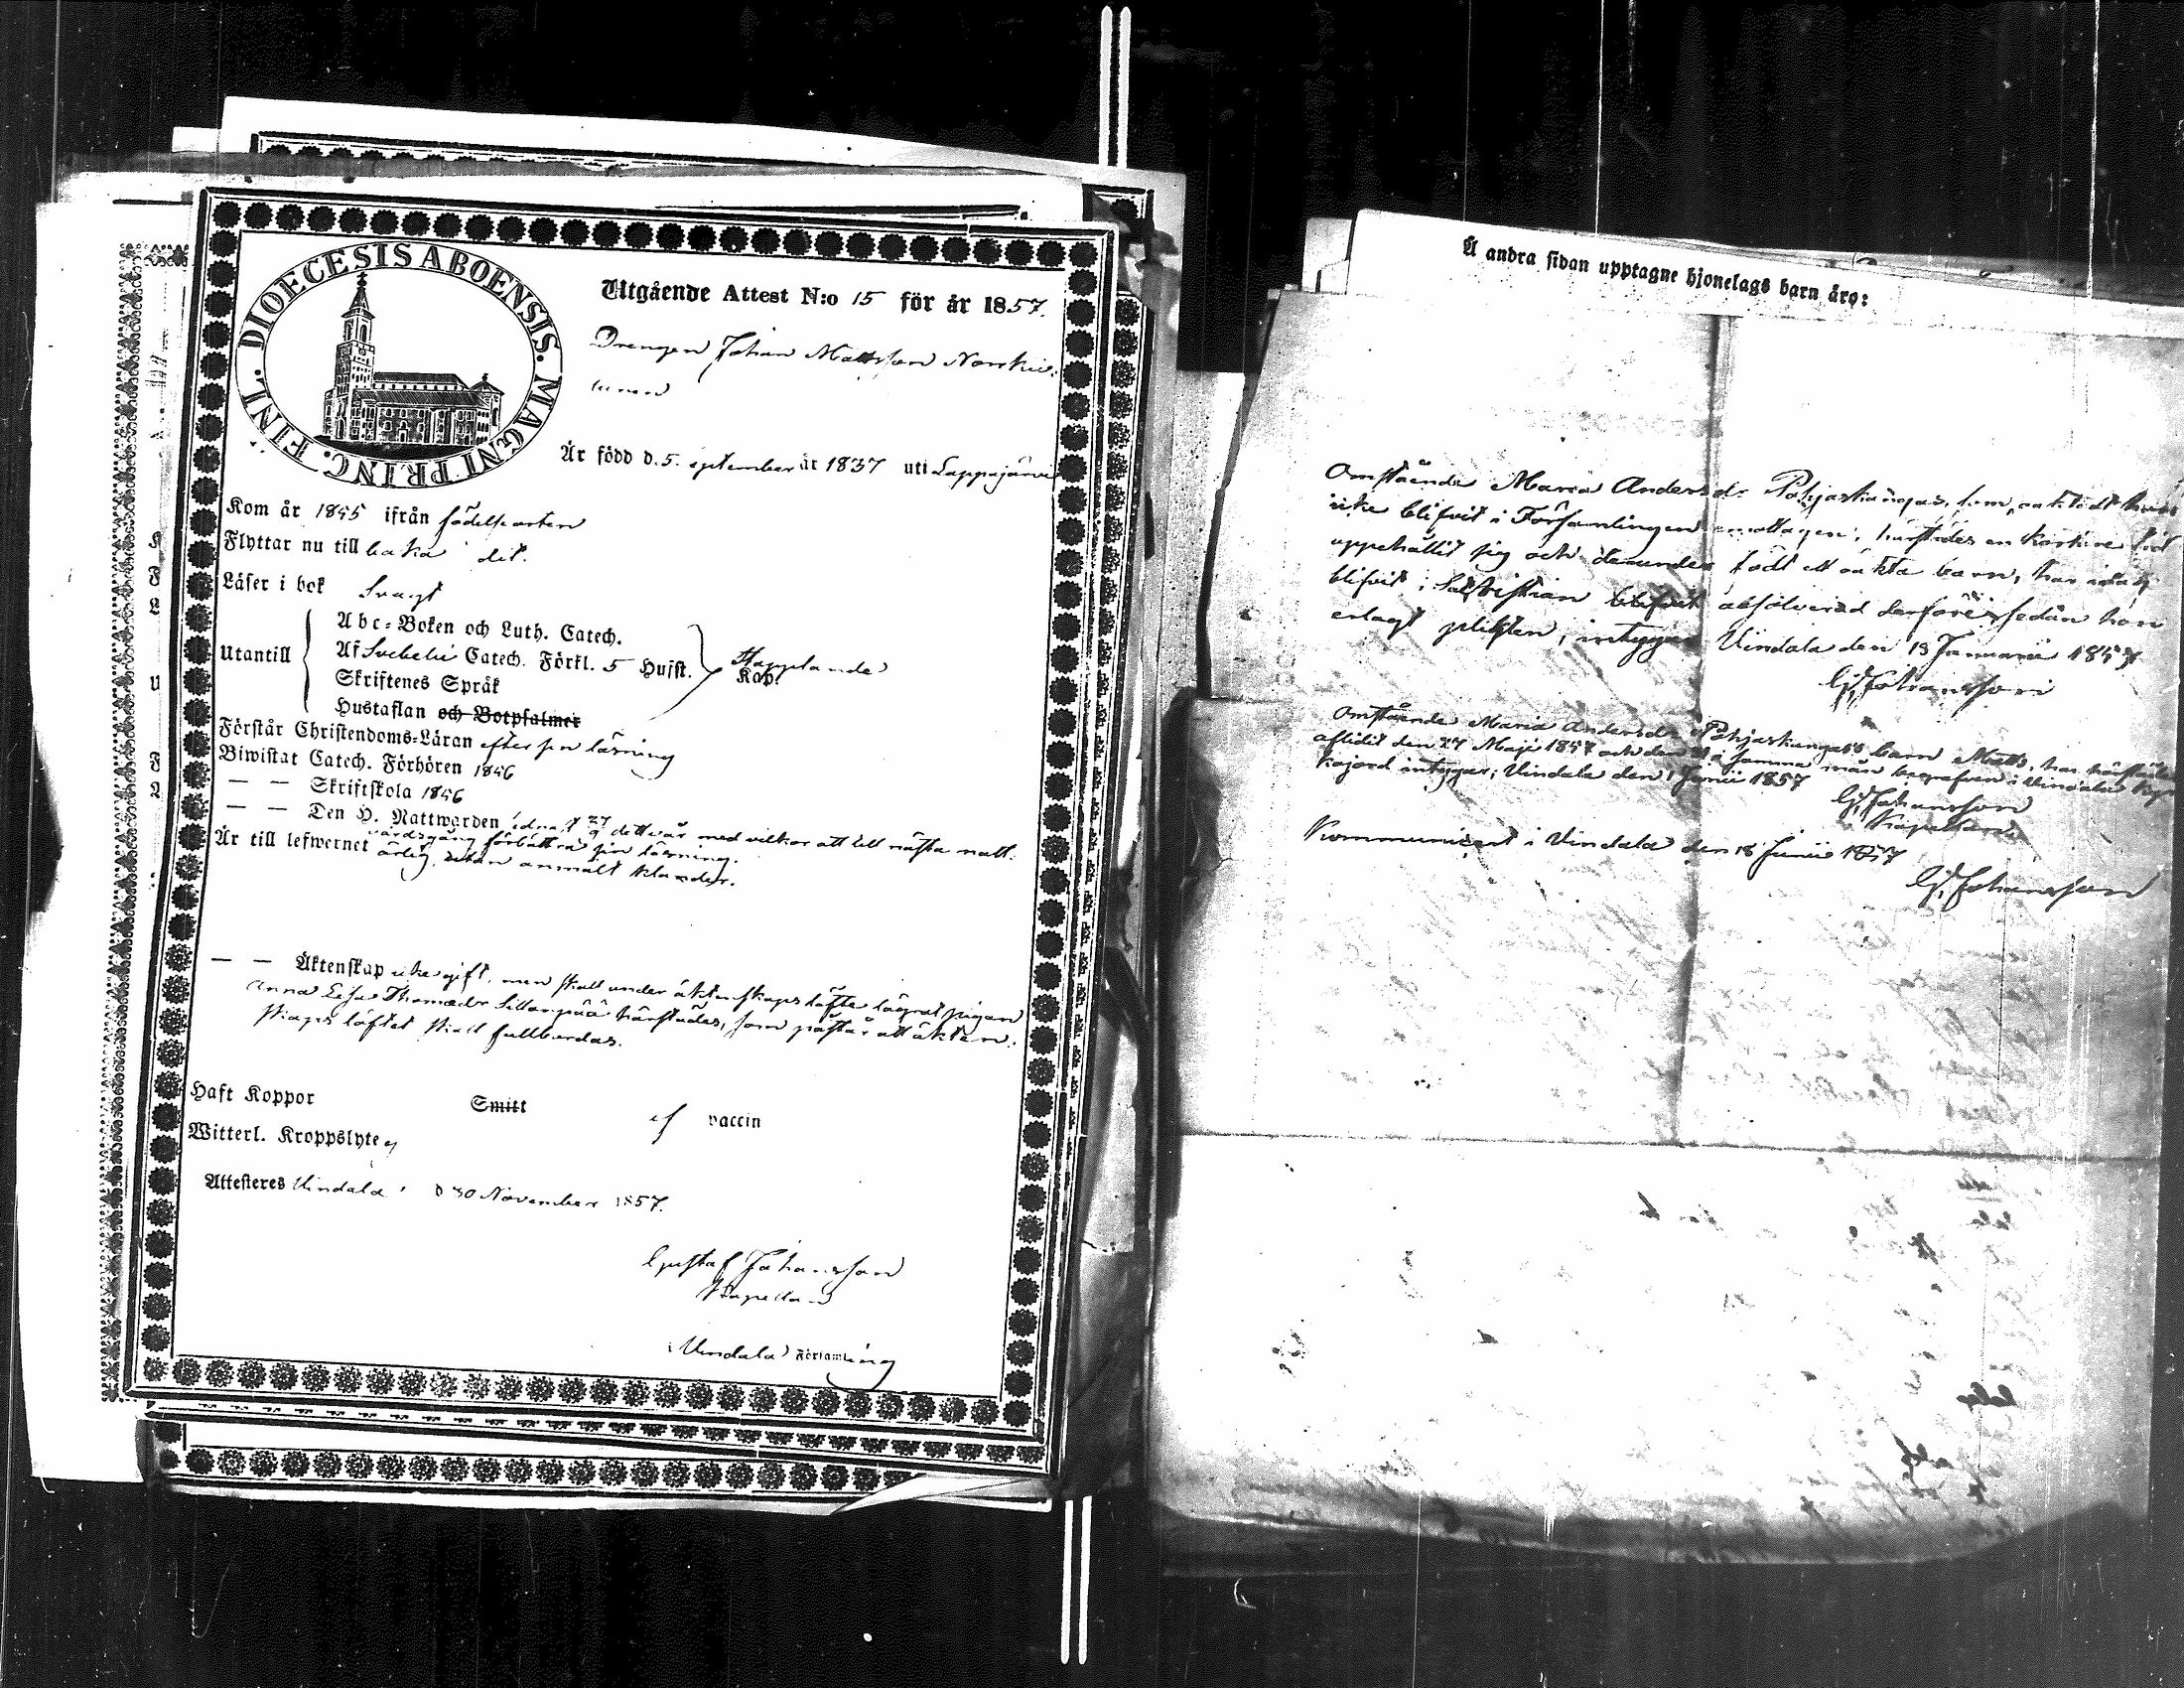 DIOECESIS ABOENSIS. MAGNI PRINC. FINL.
Utgående Attest N:o 15 för år 1857.
Drengen Johan Mattsson
Är född d. 5. september år 1837 uti Lappajärvi
Kom år 1845 ifrån födelseorten
Flyttar nu till baka dit.
Läser i bok Svagt
Utantill
Abc-Boken och Luth. Catech.
Af Svebelii Catech. Förkl. 5 Hufst.
Skriftenes Språk
Hustaflan och Botpsalmer
Kap.
Förstår Christendoms-Läran efter sin läsning
Biwistat Catech. Förhören 1856
— — Skriftskola 1856
— — Den H. Nattwarden detta år med vilkor att till nästa natt-
vardsgång förbättra sin läsning.
Är till lefwernet ärlig, utan anmält klander.
— — Äktenskap icke gift, men skall under äktenskaps löfte lägrat pigan
Anna Lisa Thomædr Sillanpää härstädes, som påstår att äkten-
skaps löftet skall fullbordas.
Haft Koppor Smitt ej vaccin
Witterl. Kroppslyte ej
Attesteres Vindala d 30 November 1857.
Gustaf Johansson
Kapellan
i Vindala Församling
Å andra sidan upptagne hjonelags barn äro:
Omstående Maria Andersdr Pohjaskangas, som, oaktadt hon
icke blifvit i Församlingen emottagen, härstädes en kortare tid
uppehållit sig och derunder födt ett oäkta barn, har idag
blifvit i Sakristian blifvit absolverad derföre, sedan hon
erlagt plikten, intygar Vindala den 13 Januarii 1857
G. Johansson
Omstående Maria Andersdr Pohjaskangas's barn Matts, har härstädes
aflidit den 27 Maji 1857 och den i samma mån begrafven i Vindala
intygar; Vindala den 1 Junii 1857
G. Johansson
Kapellan
Kommunicerat i Vindala den 18 Junii 1857
G. Johansson